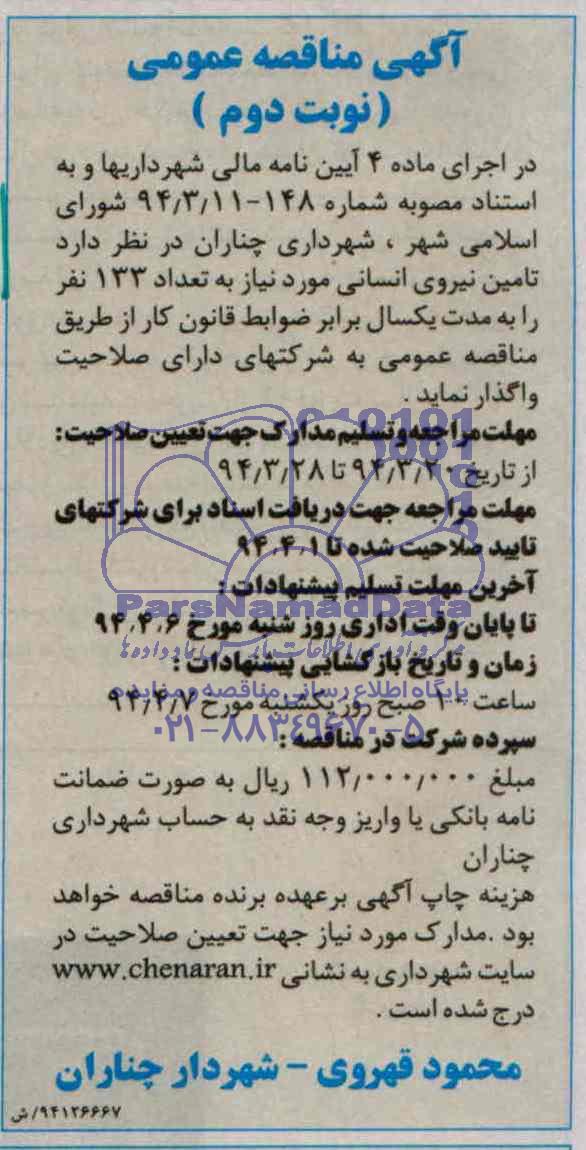 آگهی مناقصه عمومی
(نوبت دوم)
در اجرای ماده ۴ آیین نامه مالی شهرداریها و به
استناد مصوبه شماره ۱۴۸-۹۴/۳/۱۱ شورای
اسلامی شهر ، شهرداری چناران در نظر دارد
تامین نیروی انسانی مورد نیاز به تعداد ۱۳۳ نفر
را به مدت یکسال برابر ضوابط قانون کار از طریق
مناقصه عمومی به شرکتهای دارای صلاحیت
واگذار نماید .
مهلت مراجعه و تسلیم مدارک جهت تعیین صلاحیت :
از تاریخ ۹۴/۳/۲۰ تا ۹۴/۳/۲۸
مهلت مراجعه جهت دریافت اسناد برای شرکتهای
تایید صلاحیت شده تا ۹۴،۴،۱
آخرین مهلت تسلیم پیشنهادات :
ParsNamadData
تا پایان وقت اداری روز شنبه مورخ ۹۴،۴،۶
زمان و تاریخ بازگشایی پیشنهادات :
پایگاه اطلاع رسانی مناقصه و مزایده
ساعت ۱۰ صبح روز یکشنبه مورخ ۹۴/۴/۷
۰۲۱-۸۸۳۴۹۶۷۰-۵
سپرده شرکت در مناقصه :
مبلغ ۱۱۲/۰۰۰/۰۰۰ ریال به صورت ضمانت
نامه بانکی یا واریز وجه نقد به حساب شهرداری
چناران
هزینه چاپ آگهی برعهده برنده مناقصه خواهد
بود .مدارک مورد نیاز جهت تعیین صلاحیت در
سایت شهرداری به نشانی www.chenaran.ir
درج شده است .
محمود قهروی - شهردار چناران
۹۴۱۲۶۶۶۷/ش